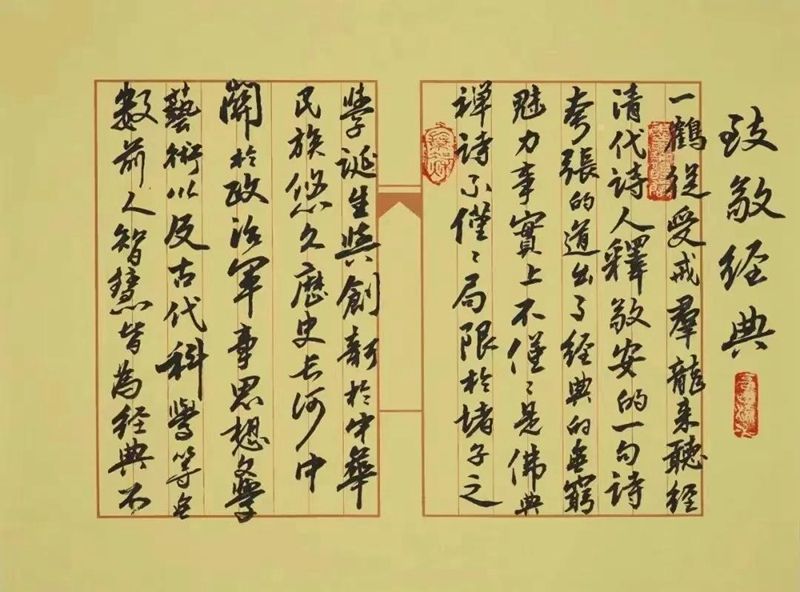 致敬經典
一鶴從受戒羣龍来聽經
清代詩人釋敬安的一句詩
夸張的道出了經典的無窮
魅力事實上不僅〻是佛典
禅詩不僅〻局限於諸子之
學誕生與創新於中華
民族悠久歷史长河中
關於政治軍事思想文學
藝術以及古代科學等無
數前人智慧皆為經典不